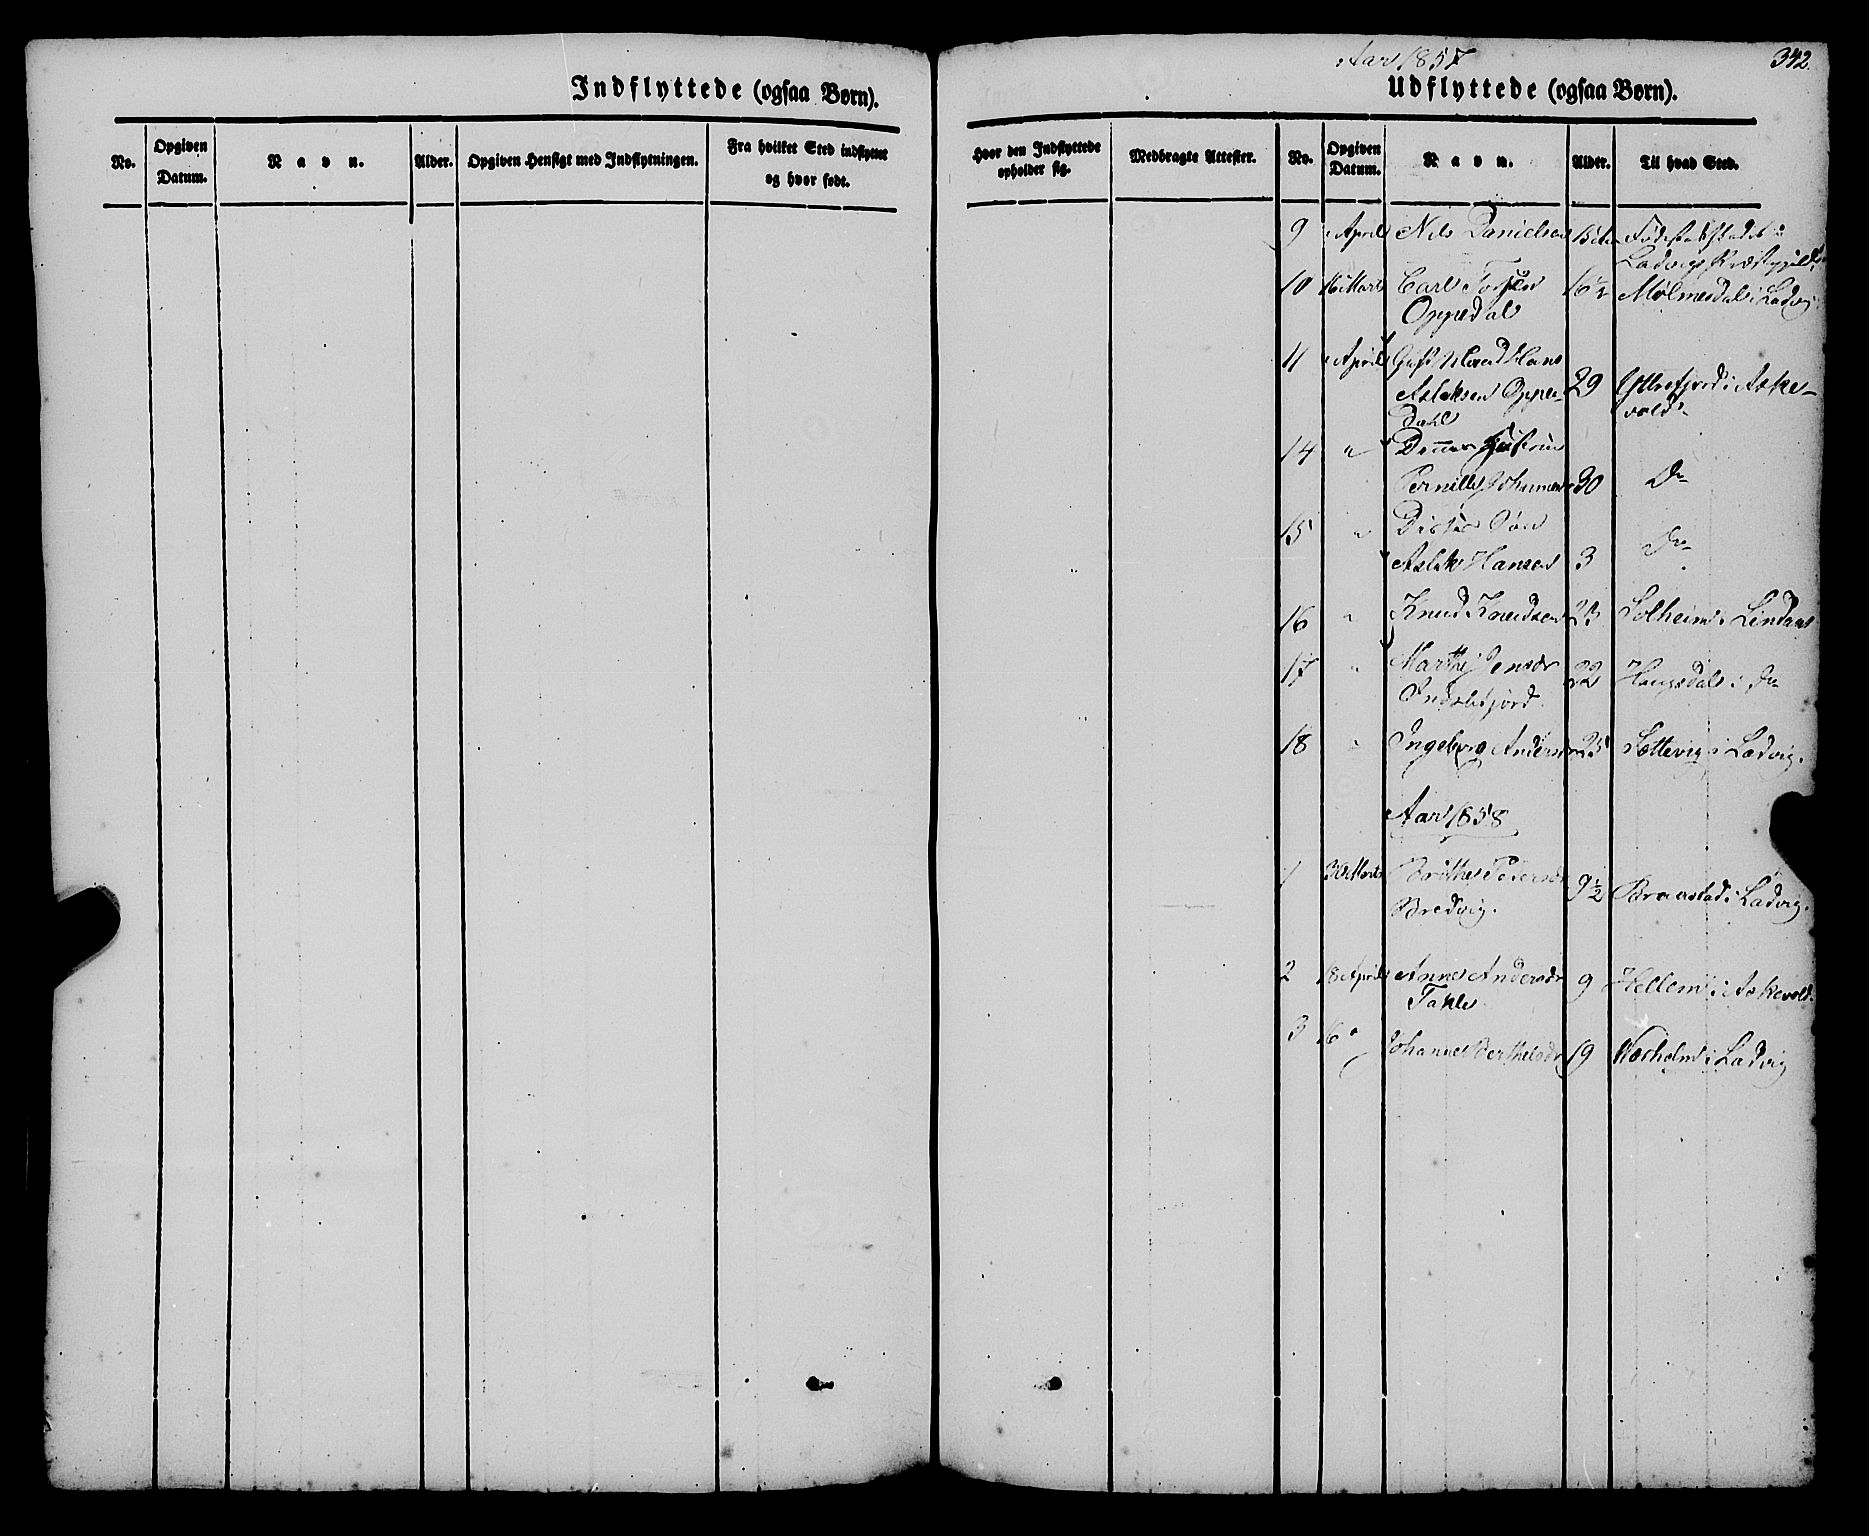 Indflyttede (ogsaa Børn).
No.
Opgiven Datum.
Navn.
Alder.
Opgiven Hensigt med Indflytningen.
Fra hvilket Sted indflyttet og hvor født.
Aar 1857
342.
Udflyttede (ogsaa Børn).
Hvor den Indflyttede opholder sig.
Medbragte Attester.
No.
Opgiven Datum.
Navn.
Alder.
Til hvad Sted.
9 April Nils Danielsen
Ladvigs Præstegjeld
10 16 Carl
Oppedal 16½ i Ladvig
11 April Hans
Aslaksen Oppe-
dahl 29 Yttrefjord i Aske-
vold
14 " Dennes Hustru
Pernille Johannes 30 Do
15 " Disses Søn
Aslak Hansen 3 Do
16 " Knud Knudsen 23 Solheim i Lindaas
17 " Marthe Jensdr
22 Haugsdal i Do
18 " Ingeborg Andersdr 25 Sættevig i Ladvig.
Aar 1858
1 30 Marts Brithe Petersdr
Bredvig. 9½ Braastad i Ladvig.
2 18 April Anne Andersdr
Takle 9 Hellem i Askevold.
3 16 " Johanne Berthelsdr 19 Værholm i Ladvig